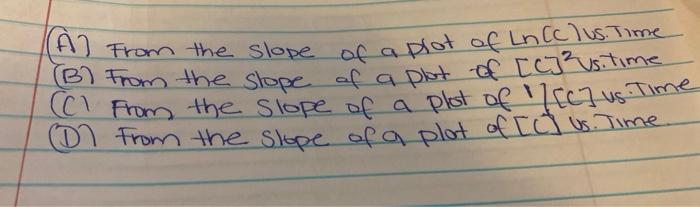 (A) From the slope of a plot of Ln[C] vs. Time
(B) From the slope of a plot of [C]² vs. time
(C) From the slope of a plot of 1/[C] vs. Time
(D) From the slope of a plot of [C] vs. Time